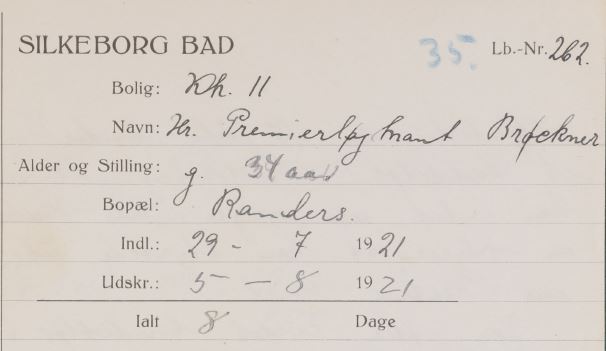 SILKEBORG BAD 35. Lb.-Nr. 262.
Bolig: Kh. 11
Navn: Hr. Premierløjtnant Brøckner
Alder og Stilling: g. 34 aar
Bopæl: Randers.
Indl.: 29 - 7 1921
Udskr.: 5 - 8 1921
Ialt 8 Dage